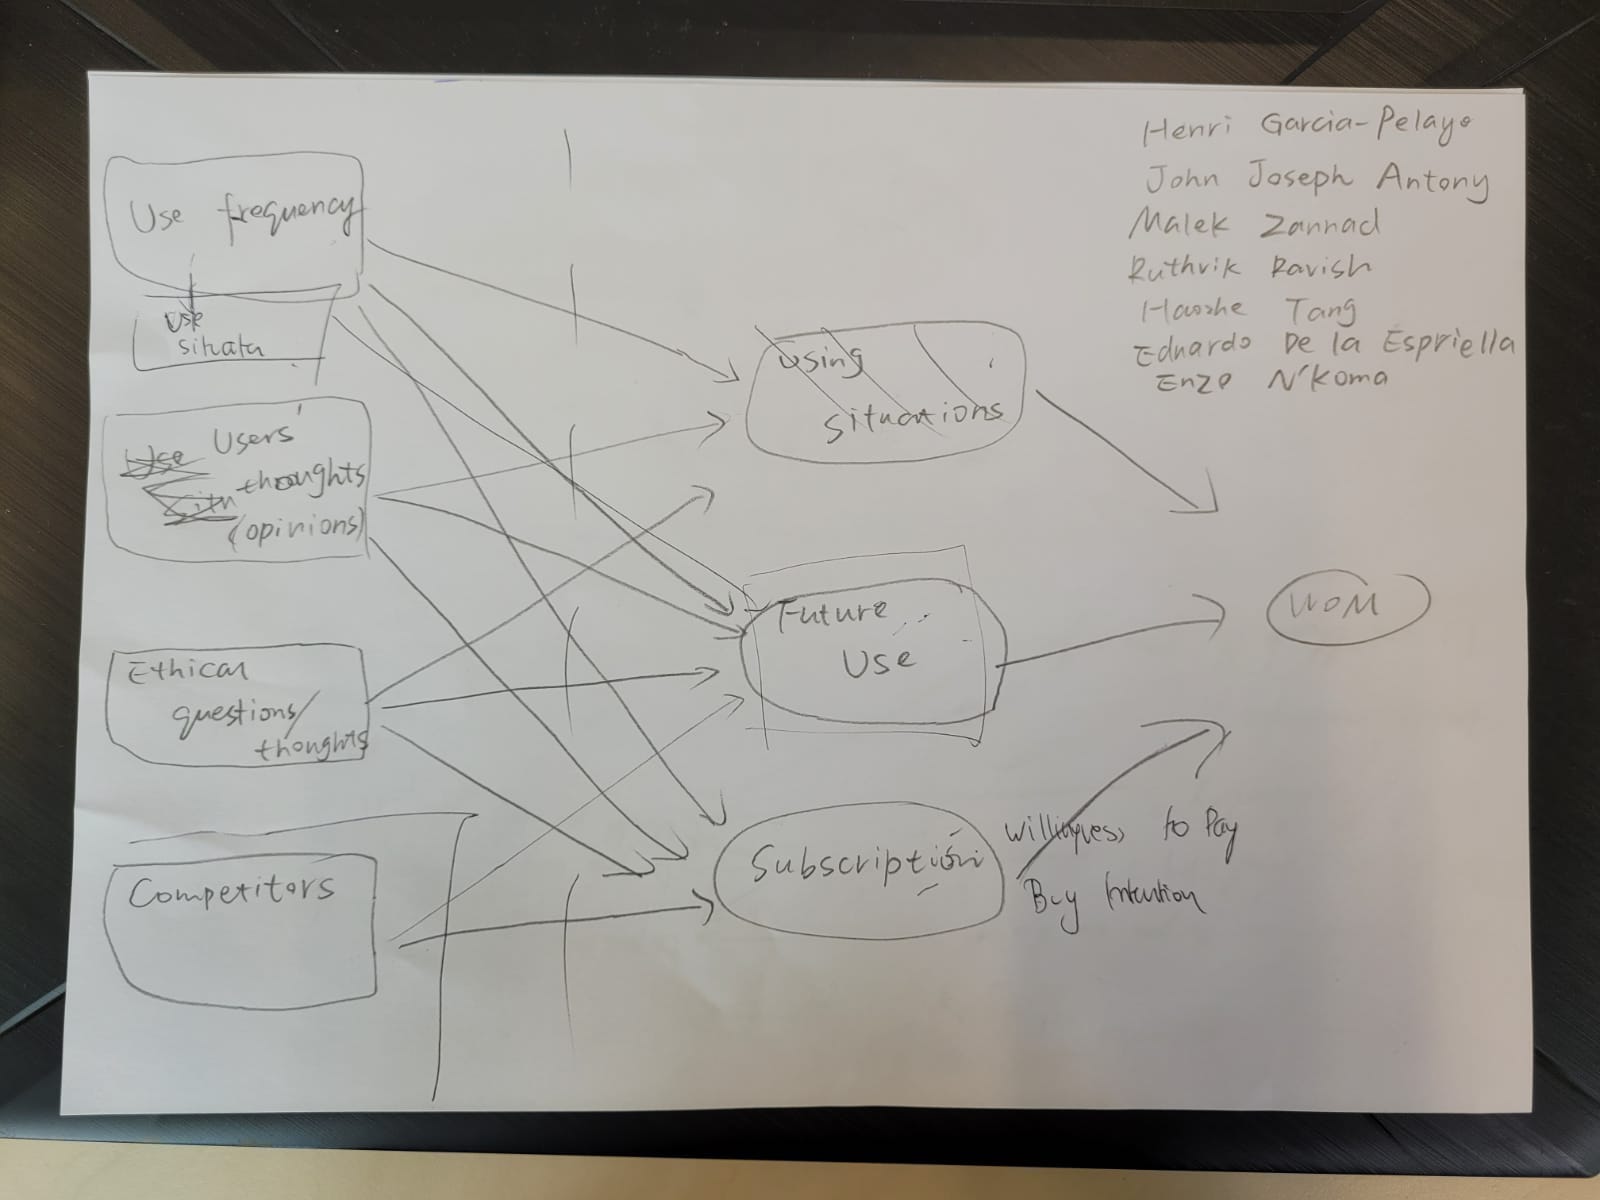 Henri Garcia-Pelayo
John Joseph Antony
Malek Zannad
Ruthvik Ravish
Haozhe Tang
Eduardo De la Espriella
Enzo N'Koma
Use frequency
Use
situata
Users'
Use
thoughts
Situ
(opinions)
Ethical
questions/
thoughts
Competitors
Using
situations
Future
Use
Subscription
Willingness to Pay
Buy Intention
WOM